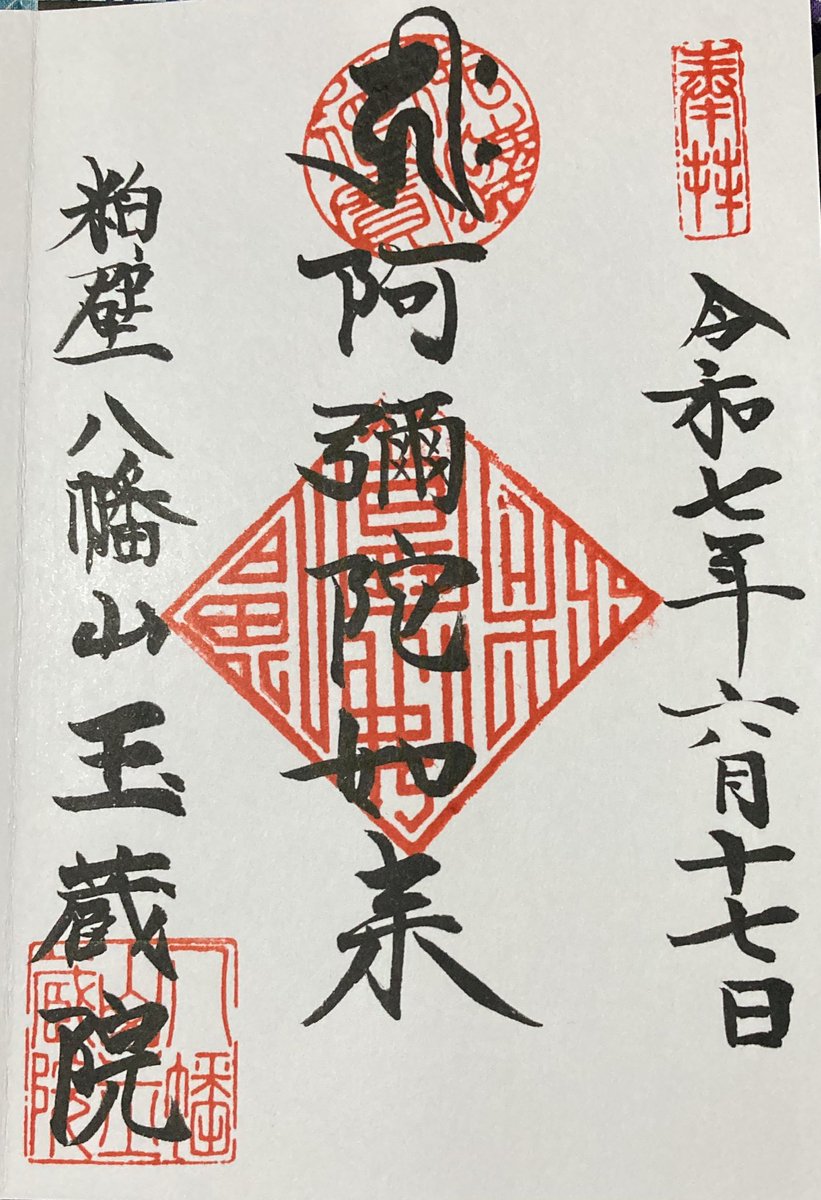 奉拝
令和七年六月十七日
阿彌陀如来
粕壁 八幡山 玉蔵院
八幡山玉蔵院